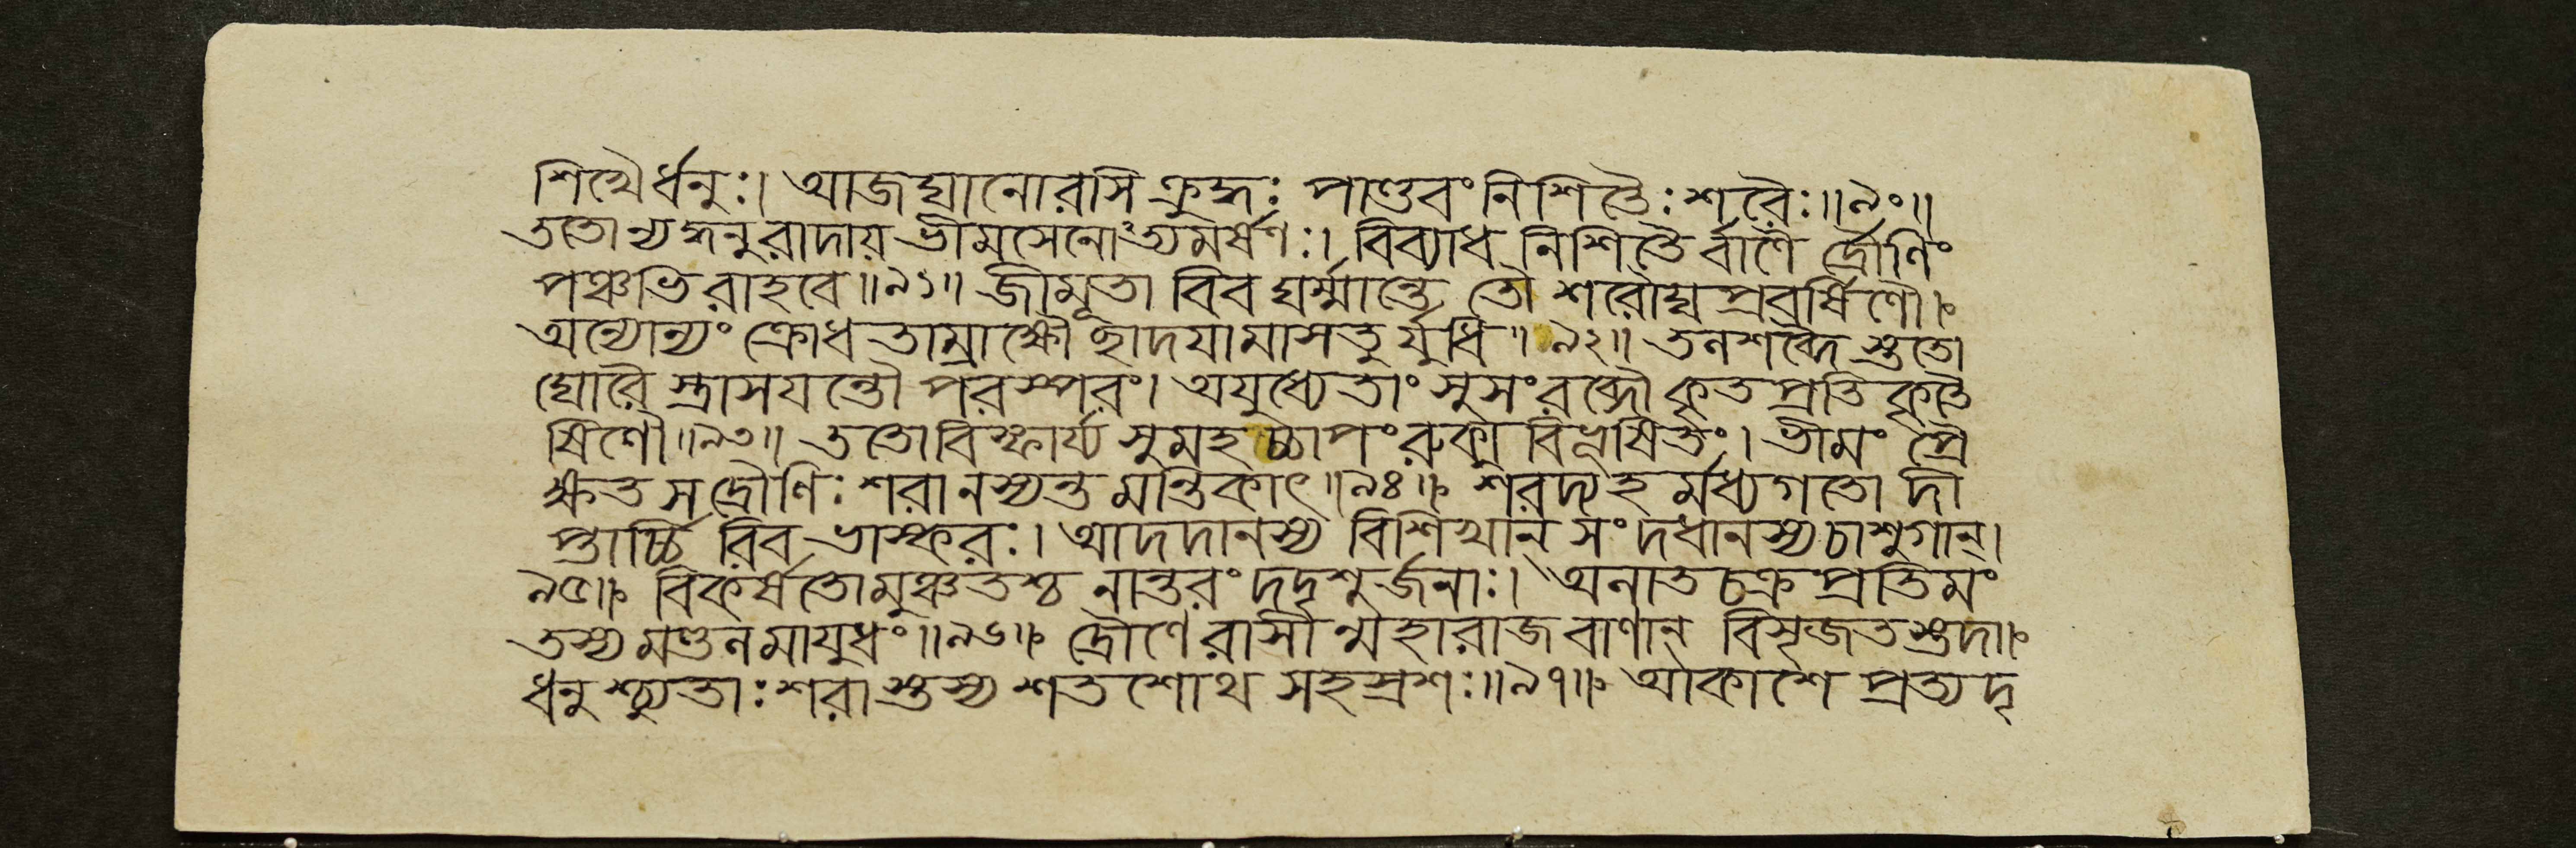 শিখৈর্ধনুঃ। আজঘানোরসি ক্রুদ্ধঃ পাণ্ডবং নিশিতৈঃ শরৈঃ॥৯০॥
ততোন্যদ্ধনুরাদায় ভীমসেনোঽত্যমর্ষণঃ। বিব্যাধ নিশিতৈর্বাণৈ র্দ্রৌণিং
পঞ্চভিরাহবে॥৯১॥ জীমূতাবিব ঘর্ম্মান্তে তৌ শরৌঘ প্রবর্ষিণৌ।
অন্যোন্যং ক্রোধ তাম্রাক্ষৌ ছাদযামাসতুর্যুধি॥৯২॥ তলশব্দৈ স্ততো
ঘোরৈ স্ত্রাসযন্তৌ পরস্পরং। অযুধ্যেতাং সুসংরব্ধৌ কৃত প্রতিকৃতৈ
ষিণৌ॥৯৩॥ ততো বিস্ফার্য্য সুমহচ্চাপং রুক্ম বিভূষিতং। ভীমং প্রৈ
ক্ষত স দ্রৌণিঃ শরানস্যন্ত মন্তিকাৎ॥৯৪॥ শরদ্যহর্মধ্যগতো দী
প্তার্চ্চি রিব ভাস্করঃ। আদদানস্য বিশিখান্ সংদধানস্য চাশুগান্।
৯৫॥ বিকর্ষতো মুঞ্চতশ্চ নান্তরং দদৃশুর্জনাঃ। অলাত চক্র প্রতিমং
তস্য মণ্ডল মাযুধং॥৯৬॥ দ্রৌণেরাসীন্মহারাজ বাণান্ বিসৃজতস্তদা।
ধনুশ্চ্যুতাঃ শরাস্তস্য শতশোথ সহস্রশঃ॥৯৭॥ আকাশে প্রত্যদৃ